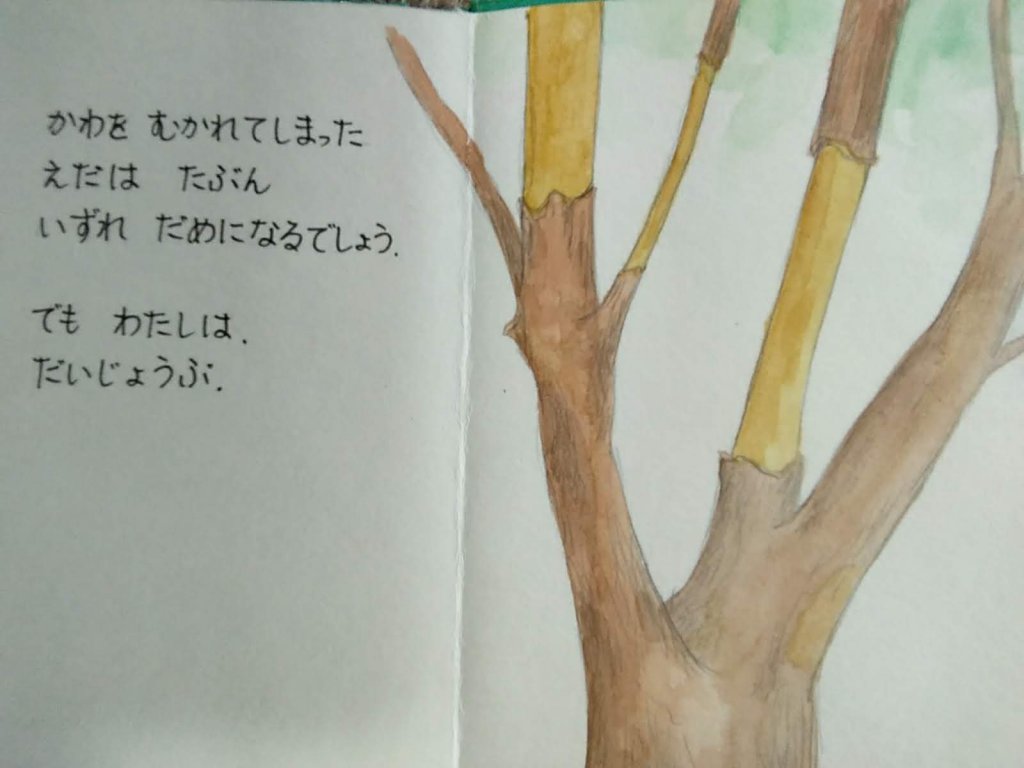 かわを むかれてしまった
えだは たぶん
いずれ だめになるでしょう.
でも わたしは.
だいじょうぶ.